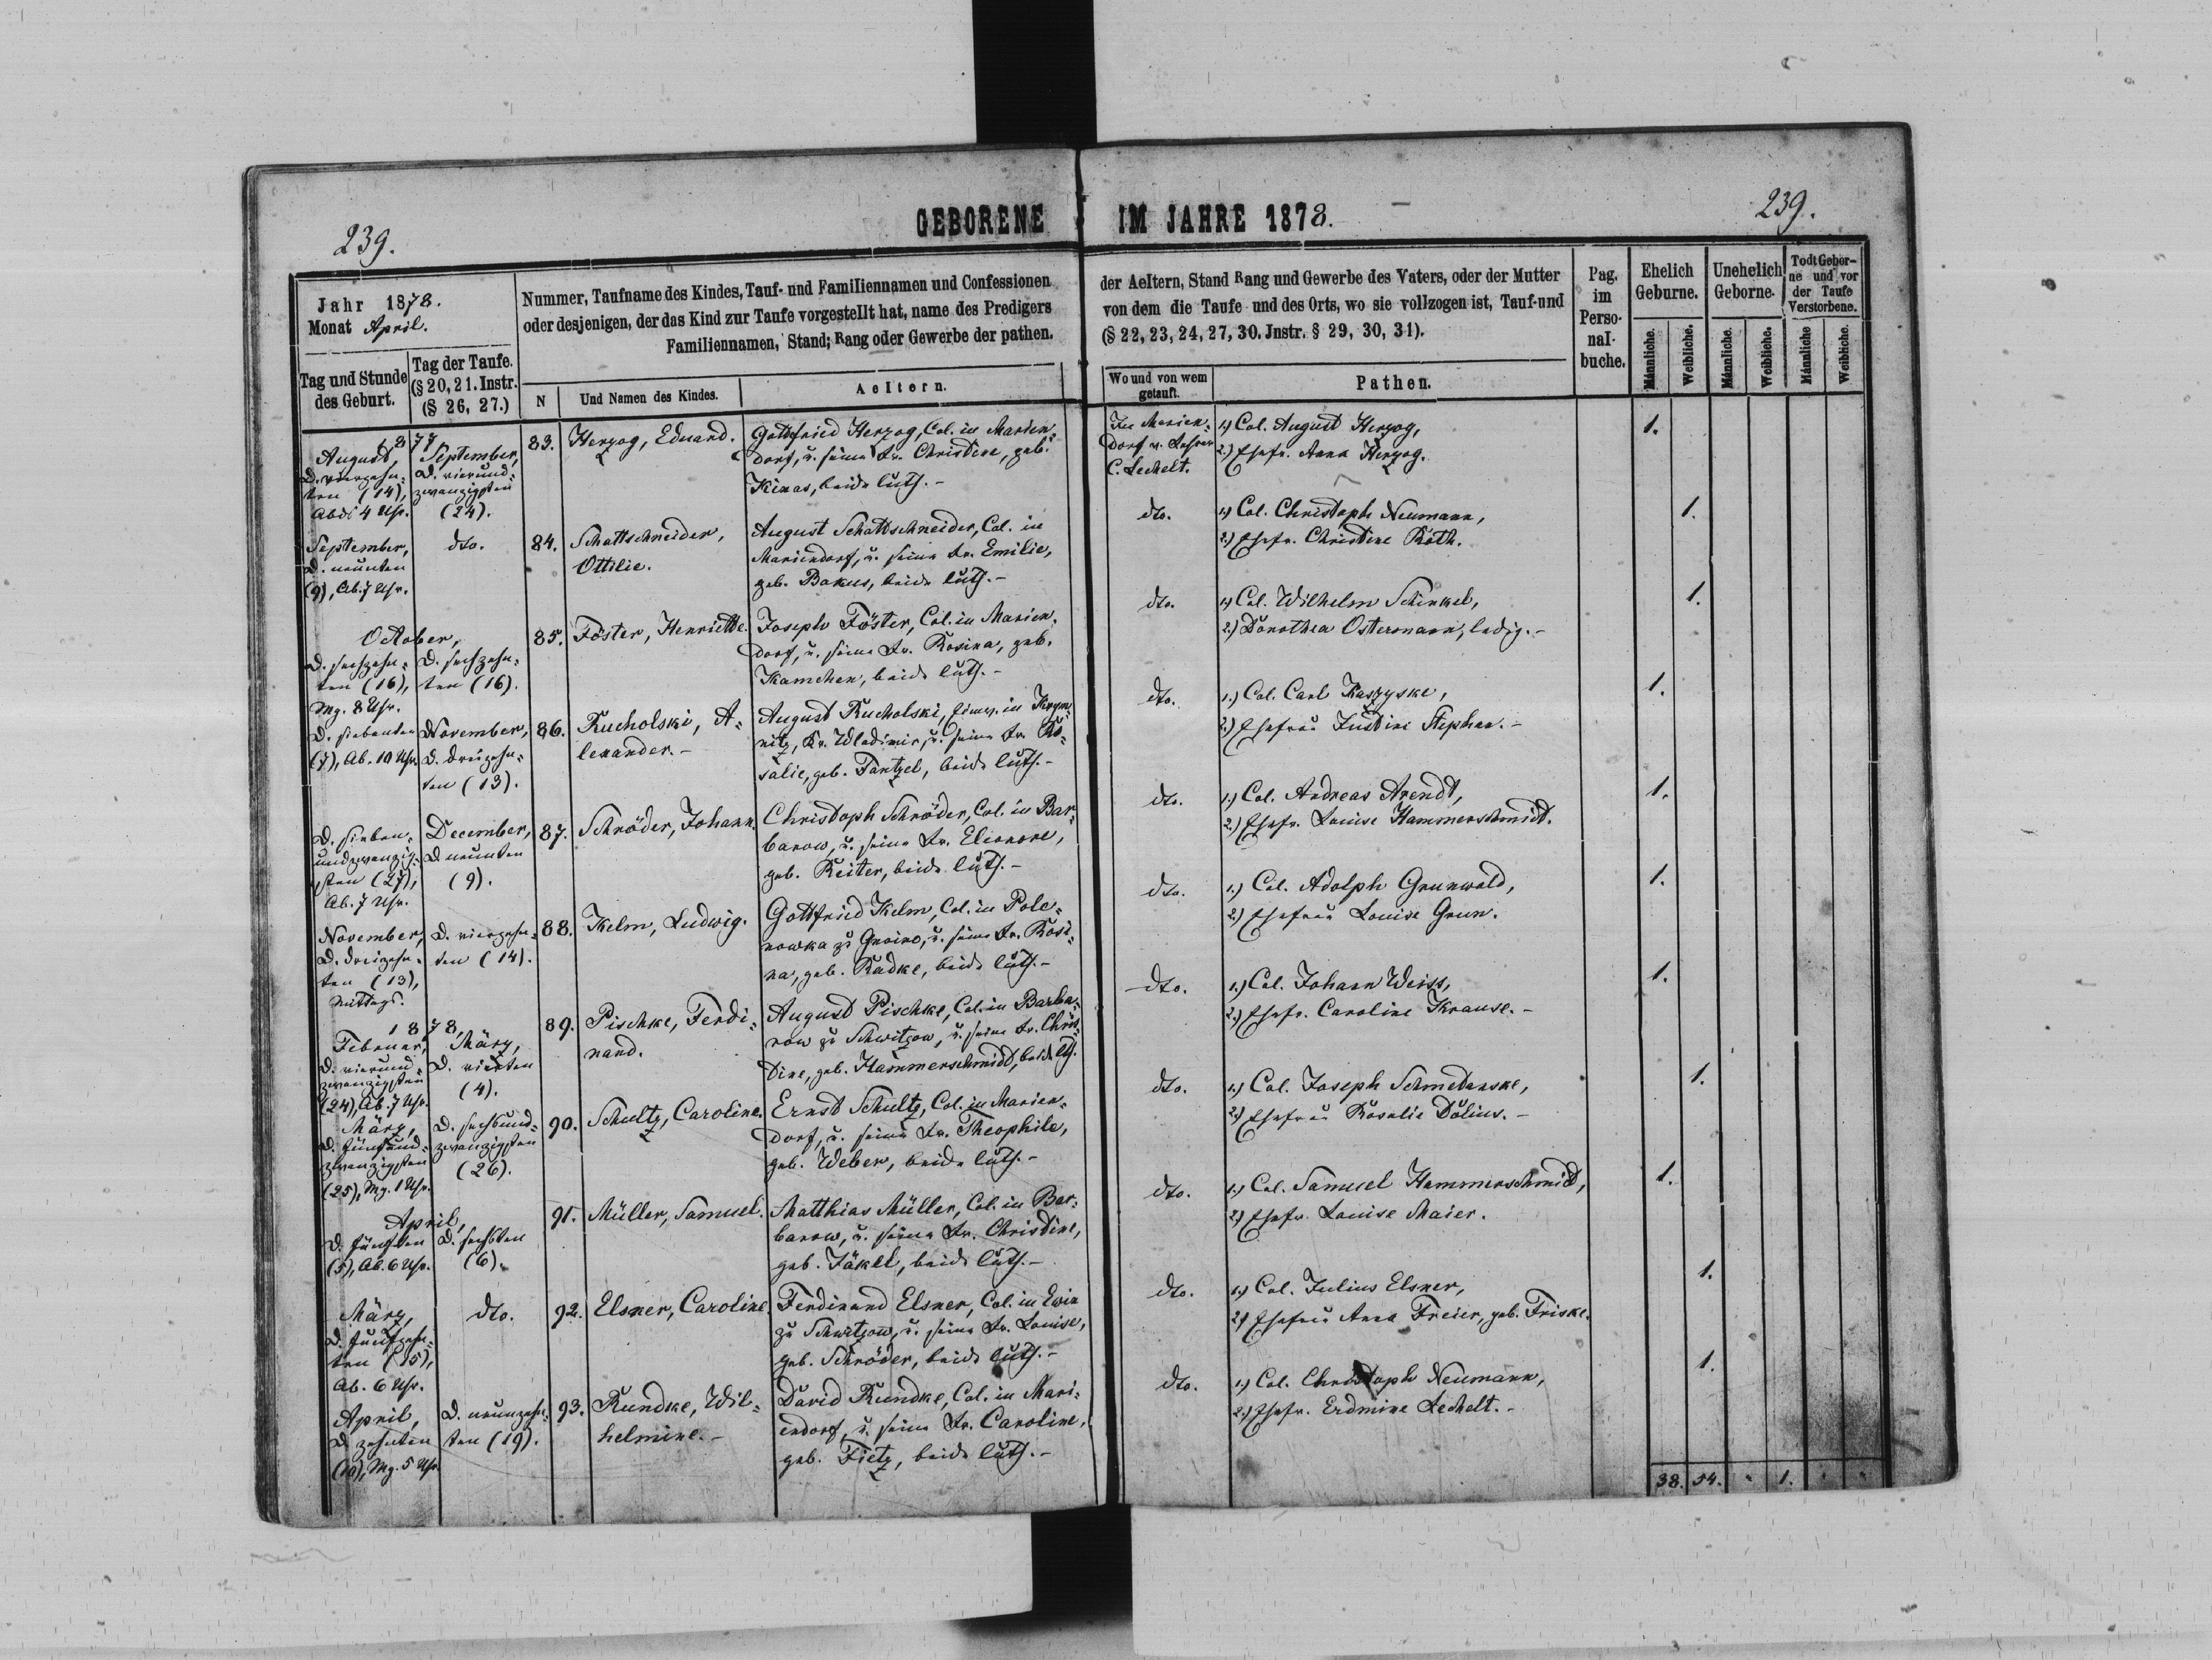 239.
GEBORENE IM JAHRE 1878.
239.
Jahr 1878.
Monat April.
Tag und Stunde
des Geburt.
Tag der Taufe.
(§ 20, 21. Instr.
(§ 26, 27.)
Nummer, Taufname des Kindes, Tauf- und Familiennamen und Confessionen
oder desjenigen, der das Kind zur Taufe vorgestellt hat, name des Predigers
Familiennamen, Stand; Rang oder Gewerbe der pathen.
N
Und Namen des Kindes.
Aeltern.
der Aeltern, Stand Rang und Gewerbe des Vaters, oder der Mutter
von dem die Taufe und des Orts, wo sie vollzogen ist, Tauf-und
(§ 22, 23, 24, 27, 30. Jnstr. § 29, 30, 31).
Wo und von wem
getauft.
Pathen.
Pag.
im
Perso-
nal-
buche.
Ehelich
Geburne.
Unehelich
Geborne.
Todt Gebor-
ne und vor
der Taufe
Verstorbene.
Männliche.
Weibliche.
Männliche.
Weibliche.
Männliche
Weibliche.
1877
August,
D. vierzehn-
ten (14),
Abds 4 Uhr.
September,
D. vierund-
zwanzigsten
(24).
83.
Herzog, Eduard.
Gottfried Herzog, Col. in Marien-
dorf, u. seine Fr. Christine, geb.
Kinas, beide luth. -
In Marien-
dorf v. Lehrer
C. Lechelt.
1) Col. August Herzog,
2.) Ehefr. Anna Herzog.
1.
September,
D. neunten
(9), Ab. 7 Uhr.
dto.
84.
Schattschneider,
Ottilie.
August Schattschneider, Col. in
Mariendorf, u. seine Fr. Emilie,
geb. Bakus, beide luth. -
dto.
1) Col. Christoph Neumann,
2.) Ehefr. Christine Röth.
1.
October,
D. sechzehn-
ten (16),
Mg. 8 Uhr.
D. sechzehn-
ten (16).
85.
Föster, Henriette.
Joseph Föster, Col. in Marien-
dorf, u. seine Fr. Rosina, geb.
Kamchen, beide luth. -
dto.
1) Col. Wilhelm Schinkel,
2.) Dorothea Ostermann, ledig. -
1.
D. siebenten
(7), Ab. 10 Uhr.
November,
D. dreizehn-
ten (13).
86.
Rucholski, A-
lexander. -
August Rucholski, in
nitz, Kr. Wladimir, u. seine Fr. Ro-
salie, geb. Täntzel, beide luth. -
dto.
1.) Col. Carl Kaszyske,
2.) Ehefrau Justine Stephan. -
1.
D. sieben-
undzwanzig-
sten (27),
Ab. 7 Uhr.
December,
D. neunten
(9).
87.
Schröder, Johann.
Christoph Schröder, Col. in Bar-
barow, u. seine Fr. Eleonore,
geb. Reiter, beide luth. -
dto.
1.) Col. Andreas Arendt,
2.) Ehefr. Louise Hammerschmidt.
1.
November,
D. dreizehn-
ten (13),
Mittags.
D. vierzehn-
ten (14).
88.
Kelm, Ludwig.
Gottfried Kelm, Col. in Pole-
nowka zu Gnoino, u. seine Fr. Rosi-
na, geb. Radke, beide luth. -
dto.
1.) Col. Adolph Grunwald,
2.) Ehefrau Louise Grun.
1.
1878,
Februar,
D. vierund-
zwanzigsten
(24), Ab. 7 Uhr.
März,
D. vierten
(4).
89.
Pischke, Ferdi-
nand.
August Pischke, Col. in Barba-
row zu Schwitzow, u. seine Fr. Chris-
tine, geb. Hammerschmidt, beide lth.
dto.
1.) Col. Johann Weiss,
2.) Ehefr. Caroline Krause. -
1.
März,
D. fünfund-
zwanzigsten
(25), Mg. 1 Uhr.
D. sechsund-
zwanzigsten
(26).
90.
Schultz, Caroline.
Ernst Schultz, Col. in Marien-
dorf, u. seine Fr. Theophile,
geb. Weber, beide luth. -
dto.
1.) Col. Joseph Schmedanske,
2.) Ehefrau Rosalie Dölius. -
1.
April,
D. fünften
(5), Ab. 6 Uhr.
D. sechsten
(6).
91.
Müller, Samuel.
Matthias Müller, Col. in Bar-
barow, u. seine Fr. Christine,
geb. Jäkel, beide luth. -
dto.
1.) Col. Samuel Hammerschmid,
2.) Ehefr. Louise Maier.
1.
März,
D. fünfzehn-
ten (15),
Ab. 6 Uhr.
dto.
92.
Elsner, Caroline.
Ferdinand Elsner, Col. in Ewin
zu Schwitzow, u. seine Fr. Louise,
geb. Schröder, beide luth. -
dto.
1.) Col. Julius Elsner,
2.) Ehefrau Anna Freier, geb. Friske.
1.
April,
D. zehnten
(10), Mg. 5 Uhr.
D. neunzehn-
ten (19).
93.
Rundke, Wil-
helmine. -
David Rundke, Col. in Mari-
endorf, u. seine Fr. Caroline,
geb. Fietz, beide luth. -
dto.
1.) Col. Christoph Neumann,
2.) Ehefr. Erdmine Lechelt. -
1.
38. 54. " 1. " "